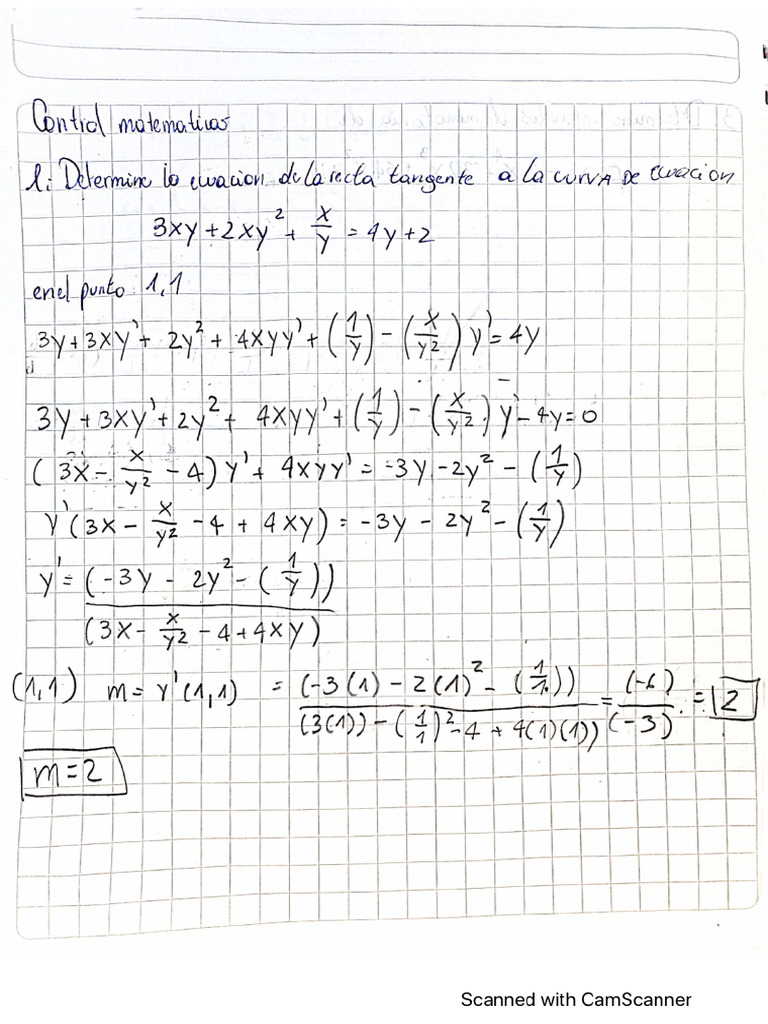 Control matematicas
1: Determine la ecuacion de la recta tangente a la curva de ecuacion
3xy + 2xy² + x/y = 4y + 2
en el punto 1,1
3y + 3xy' + 2y² + 4xyy' + (1/y) - (x/y²) y' = 4y
3y + 3xy' + 2y² + 4xyy' + (1/y) - (x/y²) y' - 4y = 0
(3x - x/y² - 4) y' + 4xyy' = -3y - 2y² - (1/y)
y' (3x - x/y² - 4 + 4xy) = -3y - 2y² - (1/y)
y' = (-3y - 2y² - (1/y)) / (3x - x/y² - 4 + 4xy)
(1,1) m = y'(1,1) = (-3(1) - 2(1)² - (1/1)) / (3(1)) - (1/1)² - 4 + 4(1)(1)) = (-6) / (-3) . = 2
m = 2
Scanned with CamScanner